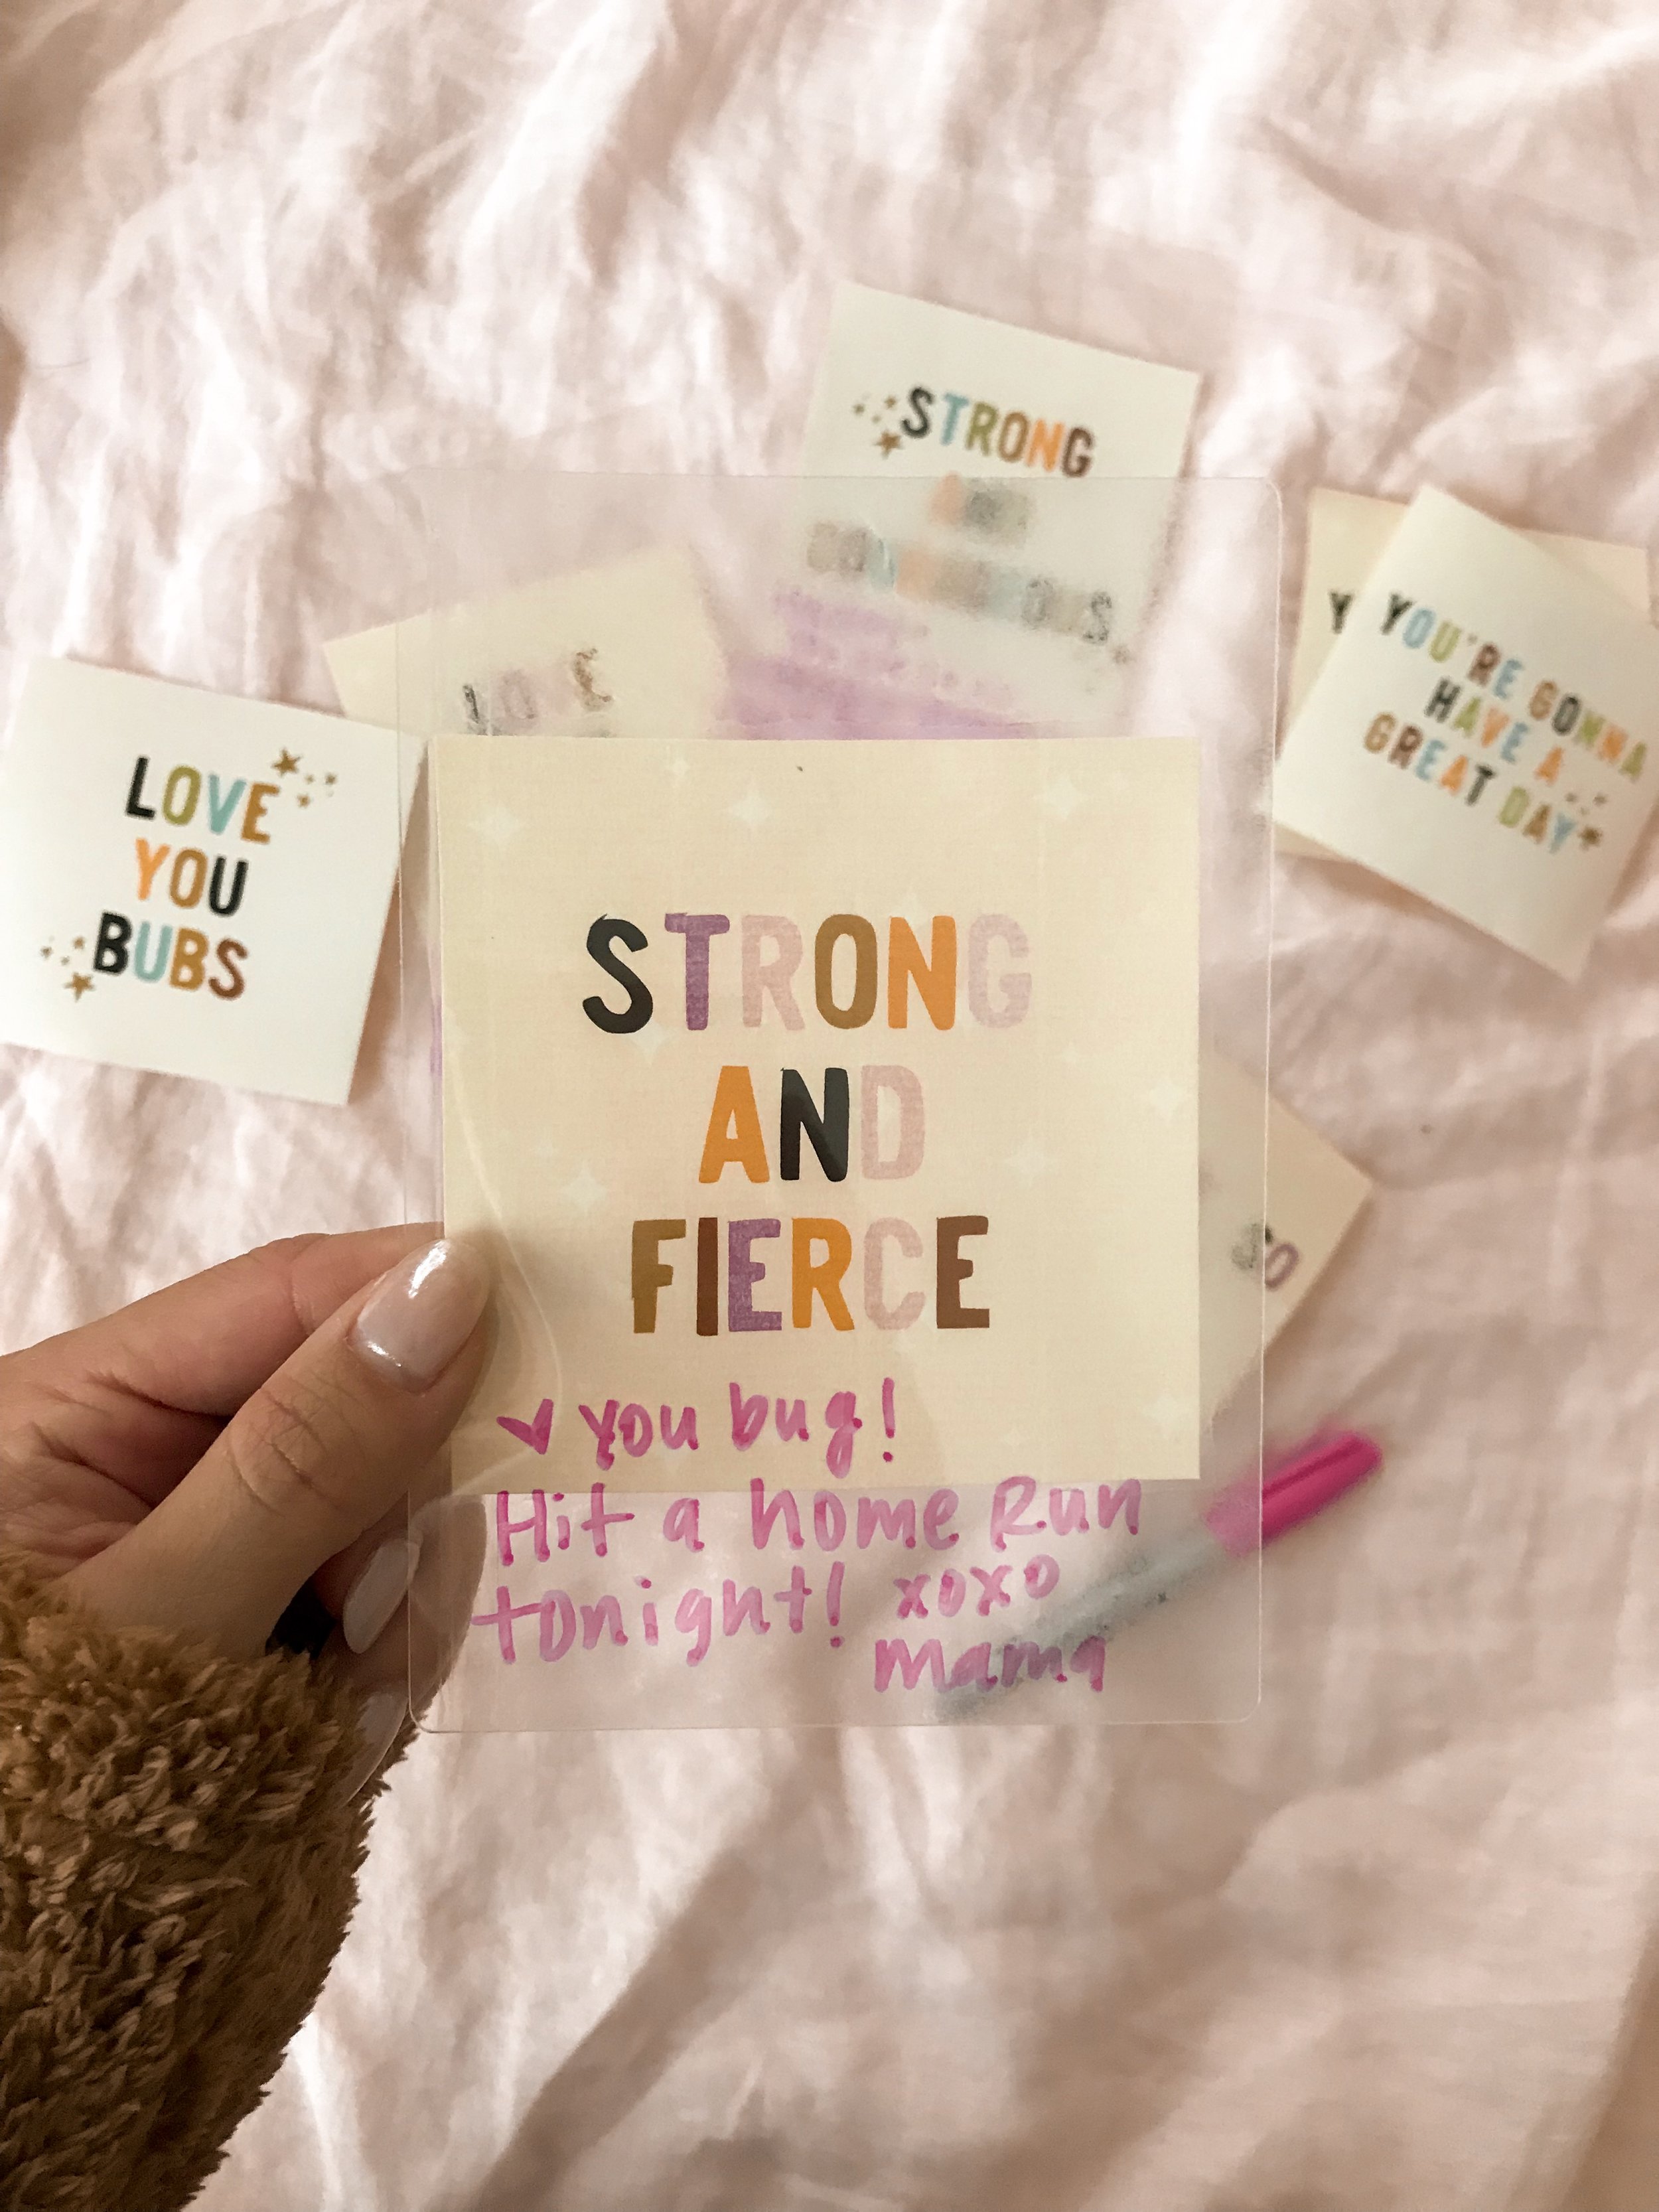 STRONG
LOVE
YOU'RE GONNA
HAVE A
GREAT DAY
Y
LOVE
YOU
BUBS
STRONG
AND
FIERCE
SO
♥ you bug!
Hit a home Run
tonight! xoxo
mama